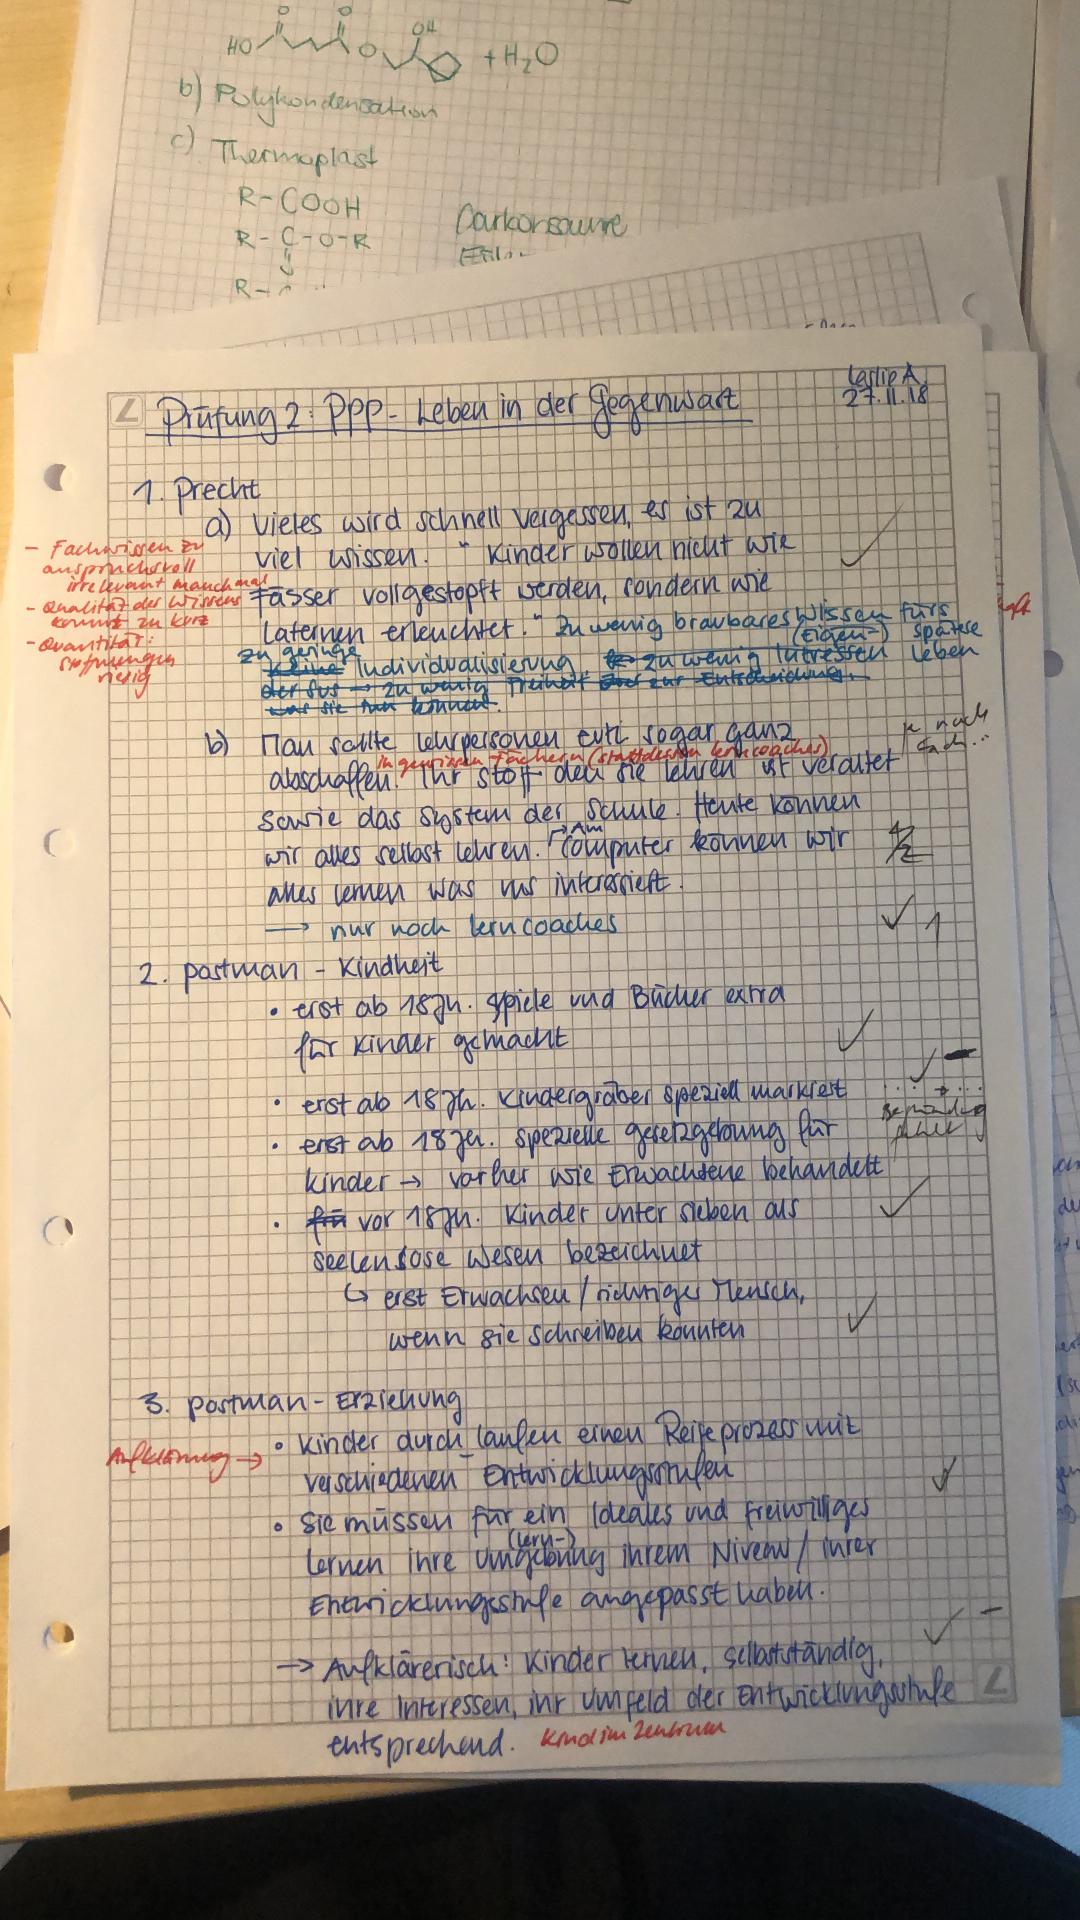 HO
O
O
O
OH
+ H₂O
b) Polykondensation
c) Thermoplast
R-COOH
R-C-O-R
R-
Prüfung 2: PPP - Leben in der Gegenwart
Leslie A.
27.11.18
1. Precht
a) Vieles wird schnell vergessen, es ist zu
viel wissen. "Kinder wollen nicht wie
Fässer vollgestopft werden, sondern wie
Laternen erleuchtet." Zu wenig braubares Wissen fürs
spätere
Leben
(Eigen-)
zu geringe
Individualisierung, zu wenig Intressen
der Sus → zu wenig Freiheit zur Entscheidung,
was sie tun können.
- Fachwissen zu
anspruchsvoll
irrelevant manchmal
- Qualität des Wissens
kommt zu kurz
- Quantität:
riesig
b) Man sollte Lehrpersonen evtl sogar ganz
je nach
Fach...
in gewissen Fächern (stattdessen lerncoaches)
abschaffen. Ihr Stoff den sie lehren ist veraltet
sowie das System der Schule. Heute können
wir alles selbst lehren. Am Computer können wir
alles lernen was uns interessiert.
→ nur noch lerncoaches
1
2. Postman - Kindheit
• erst ab 18Jh. Spiele und Bücher extra
für Kinder gemacht
• erst ab 18Jh. Kindergräber speziell markiert
• erst ab 18Jh. spezielle gesetzgebung für
Kinder → vorher wie Erwachsene behandelt
• vor 18Jh. Kinder unter sieben als
seelenlose Wesen bezeichnet
↳ erst Erwachsen / richtiger Mensch,
wenn sie schreiben konnten
3. Postman - Erziehung
Aufklärung →
• Kinder durch_laufen einen Reifeprozess mit
verschiedenen Entwicklungsstufen
• Sie müssen für ein Ideales und freiwilliges
(Lern-)
Lernen ihre Umgebung ihrem Niveau / ihrer
Entwicklungsstufe angepasst haben.
→ Aufklärerisch: Kinder lernen, selbstständig,
ihre Interessen, ihr Umfeld der Entwicklungsstufe
entsprechend. Kind im Zentrum